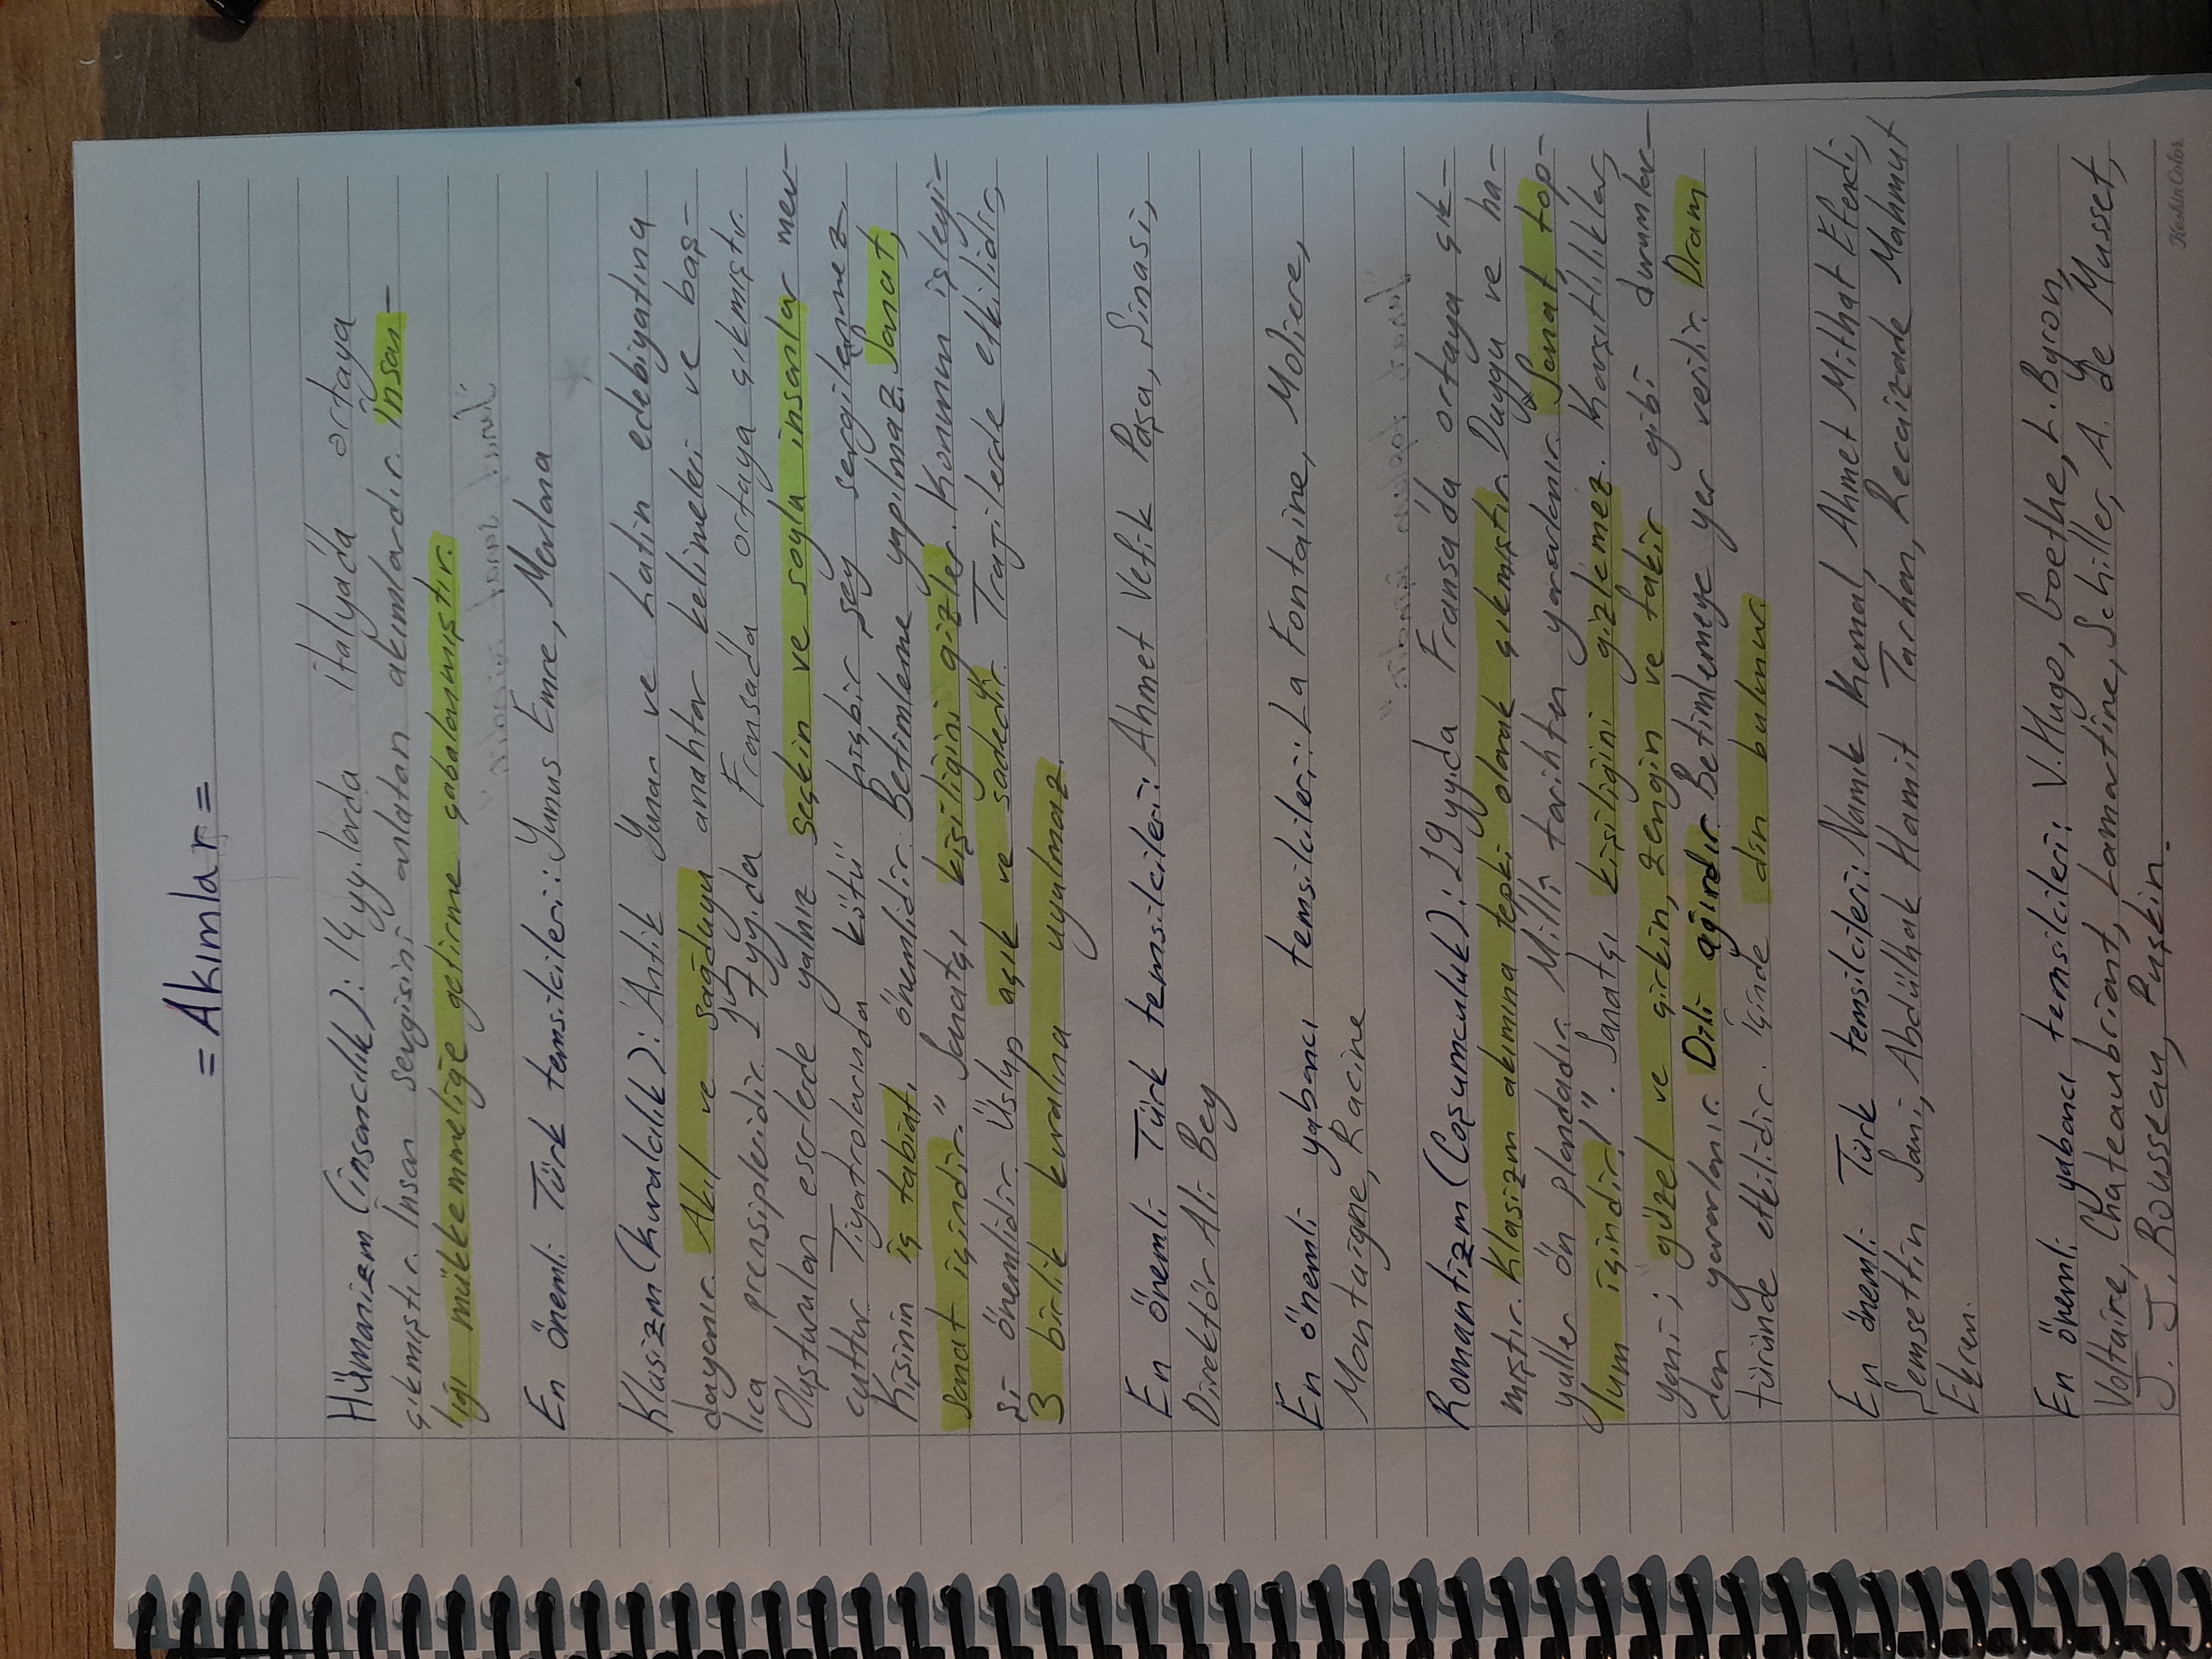 = Akımlar =
Hümanizm (insancılık): 14 yy.larda italya'da ortaya
çıkmıştır. İnsan sevgisini anlatan akımlardır. İnsan-
lığı mükkemmeliğe getirme çabalanmıştır.
En önemli Türk temsilcileri: Yunus Emre, Mevlana
Klasizm (kuralcılık): Antik Yunan ve Latin edebiyatına
dayanır. Akıl ve sağduyu anahtar kelimeleri ve baş-
lıca prensipleridir. 17 yy'da Fransa'da ortaya çıkmıştır.
Oluşturulan eserlerde yalnız seçkin ve soylu insanlar mev-
cuttur. Tiyatrolarında kötü hiçbir şey sergilenmez.
Kişinin iç tabiatı önemlidir. Betimleme yapılmaz. Sanat,
sanat içindir." Sanatçı kişiliğini gizler. Konunun işleyi-
şi önemlidir. Üslup açık ve sadedir. Trajilerde etkilidir,
3 birlik kuralına uyulmaz.
En önemli Türk temsilcileri: Ahmet Vefik Paşa, Şinasi,
Direktör Ali Bey
En önemli yabancı temsilcileri: La Fontaine, Moliere,
Montaigne, Racine
Romantizm (Coşumculuk): 19 yy'da Fransa'da ortaya çık-
mıştır. Klasizm akımına tepki olarak çıkmıştır. Duygu ve ha-
yaller ön plandadır. Milli tarihten yararlanır. Sanat top-
lum içindir!". Sanatçı kişiliğini gizlemez. Karşıtlıklar,
yani; güzel ve çirkin, zengin ve fakir gibi durumlar-
dan yararlanır. Dili ağırdır. Betimlemeye yer verilir. Dram
türünde etkilidir. İçinde din bulunur.
En önemli Türk temsilcileri: Namık Kemal, Ahmet Mithat Efendi,
Şemsettin Sami, Abdülhak Hamit Tarhan, Recaizade Mahmut
Ekrem.
En önemli yabancı temsilcileri: V. Hugo, Goethe, L. Byron,
Voltaire, Chateaubriant, Lamartine, Schiller, A. de Musset,
J. J. Rousseau, Puşkin.
KeskinColor